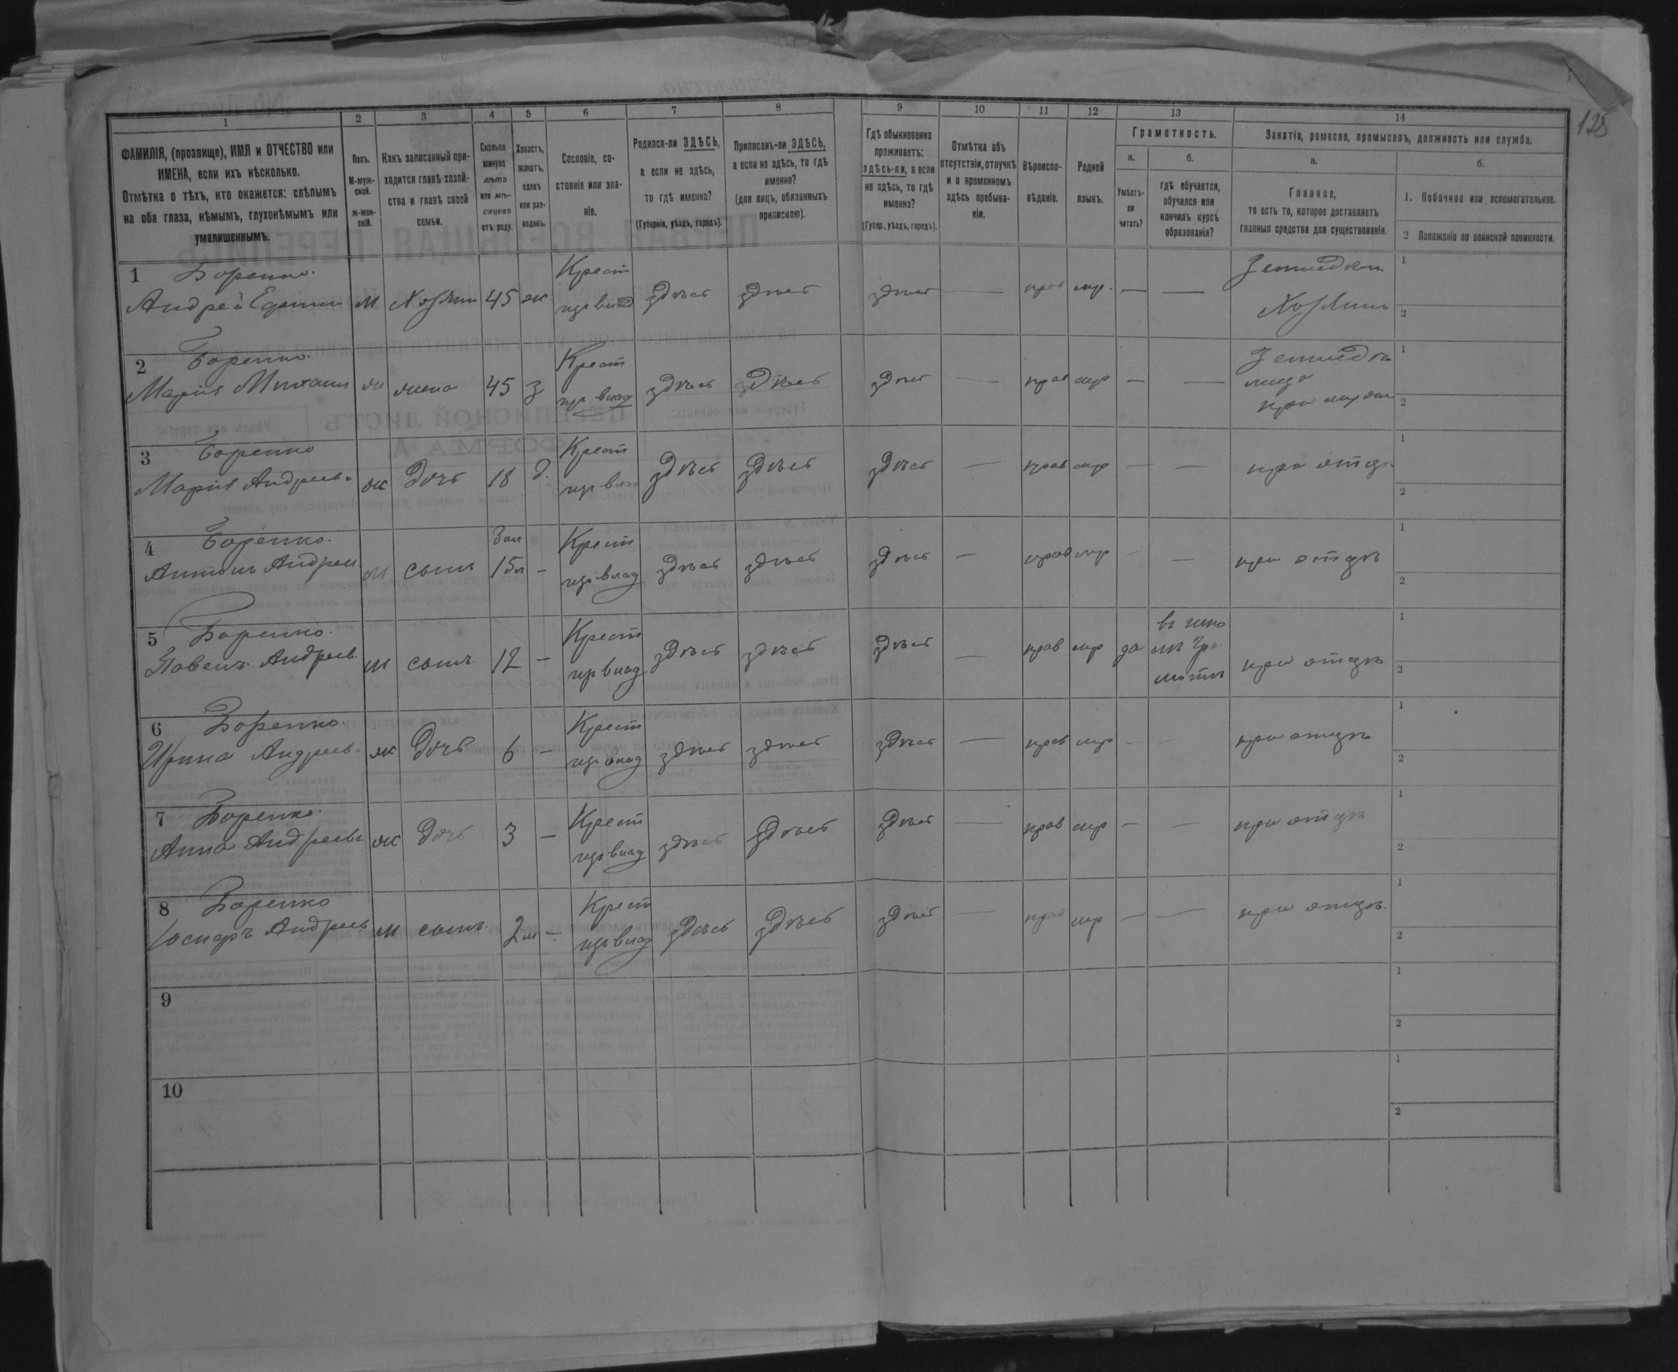 125
1 2 3 4 5 6 7 8 9 10 11 12 13 14
ФАМИЛІЯ, (прозвище), ИМЯ и ОТЧЕСТВО или
ИМЕНА, если ихъ нѣсколько.
Отмѣтка о тѣхъ, кто окажется: слѣпымъ
на оба глаза, нѣмымъ, глухонѣмымъ или
умалишеннымъ.
Полъ.
М-муж-
ской.
Ж-жен-
скій.
Какъ записанный при-
ходится главѣ хозяй-
ства и главѣ своей
семьи.
Сколько
минуло
лѣтъ
или мѣ-
сяцевъ
отъ роду.
Холостъ,
женатъ,
вдовъ
или раз-
веденъ.
Сословіе, со-
стояніе или зва-
ніе.
Родился-ли ЗДѢСЬ,
а если не здѣсь,
то гдѣ именно?
(Губернія, уѣздъ, городъ).
Приписанъ-ли ЗДѢСЬ,
а если не здѣсь, то гдѣ
именно?
(для лицъ, обязанныхъ
припискою).
Гдѣ обыкновенно
проживаетъ:
здѣсь-ли, а если
не здѣсь, то гдѣ
именно?
(Губер., уѣздъ, городъ).
Отмѣтка объ
отсутствіи, отлучкѣ
и о временномъ
здѣсь пребыва-
ніи.
Вѣроиспо-
вѣданіе.
Родной
языкъ.
Грамотность.
а.
Умѣетъ-
ли
читать?
б.
гдѣ обучается,
обучался или
кончилъ курсъ
образованія?
Занятіе, ремесло, промыселъ, должность или служба.
а.
Главное,
то есть то, которое доставляетъ
главныя средства для существованія.
б.
1. Побочное или вспомогательное.
2 Положеніе по воинской повинности.
1 Боренко.
Андрей м Хозяин 45 ж Крест здѣсь здѣсь здѣсь — прав — —
Хозяин
1
2
2 Боренко.
Марія жена 45 з Крест здѣсь здѣсь здѣсь — прав — —
1
2
3 Боренко
Марія Андреев ж дочь 18 д. Крест здѣсь здѣсь здѣсь — прав — — при отцѣ
1
2
4 Боренко.
Антонъ Андреев м сынъ 15 — Крест здѣсь здѣсь здѣсь — прав — — при отцѣ
1
2
5 Боренко.
Павелъ Андреев м сынъ 12 — Крест здѣсь здѣсь здѣсь — прав да при отцѣ
1
2
6 Боренко.
Ирина Андреев ж дочь 6 — Крест здѣсь здѣсь здѣсь — прав — — при отцѣ
1
2
7 Боренко.
Анна Андреева ж дочь 3 — Крест здѣсь здѣсь здѣсь — прав — — при отцѣ
1
2
8 Боренко
Андреев м сынъ 2м — Крест здѣсь здѣсь здѣсь — прав — — при отцѣ
1
2
9
1
2
10
1
2